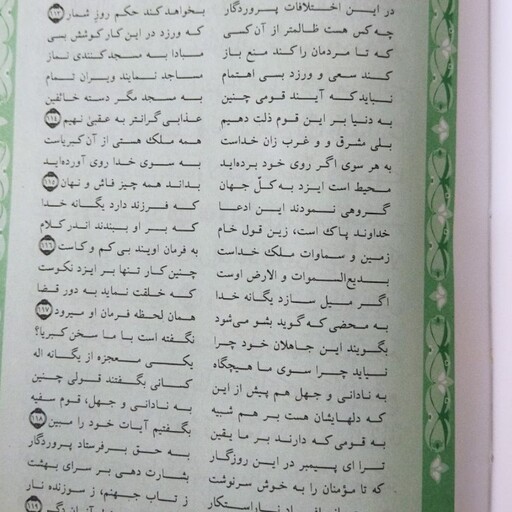 در این اختلافات پروردگار بخواهد کند حکم روز شمار (۱۱۳)
چه کس هست ظالمتر از آن کسی که ورزد در این کار کوشش بسی
که تا مردمان را کند منع باز مبادا به مسجد کنندی نماز
کند سعی و ورزد بی اهتمام مساجد نمایند ویران تمام
نباید که آیند قومی چنین به مسجد مگر دسته خائفین
به دنیا بر این قوم ذلت دهیم عذابی گرانتر به عقبی نهیم (۱۱۴)
بلی مشرق و و غرب زان خداست همه ملک هستی از آن کبریاست
به هر سوی اگر روی خود برده‌اید به سوی خدا روی آورده‌اید
محیط است ایزد به کلّ جهان بداند همه چیز فاش و نهان (۱۱۵)
گروهی نمودند این ادعا که فرزند دارد یگانه خدا
خداوند پاک است، زین قول خام که بر او ببندند اندر کلام
زمین و سماوات ملک خداست به فرمان اویند بی کم و کاست (۱۱۶)
بدیع‌السموات و الارض اوست چنین کار تنها بر ایزد نکوست
اگر میل سازد یگانه خدا که خلقت نماید به دور قضا
به محضی که گوید بشو می‌شود همان لحظه فرمان او میرود (۱۱۷)
بگویند این جاهلان خود چرا نگفته است با ما سخن کبریا؟
نیاید چرا سوی ما هیچگاه یکی معجزه از یگانه اله
به نادانی و جهل هم پیش از این کسانی بگفتند قولی چنین
که دلهایشان هست بر هم شبیه به نادانی و جهل، قوم سفیه
به قومی که دارند بر ما یقین بگفتیم آیات خود را مبین (۱۱۸)
ترا ای پیمبر در این روزگار به حق برفرستاد پروردگار
که تا مؤمنان را به خوش سرنوشت بشارت دهی بر سرای بهشت
ز تاب جهنم، ز سوزنده نار (۱۱۹)